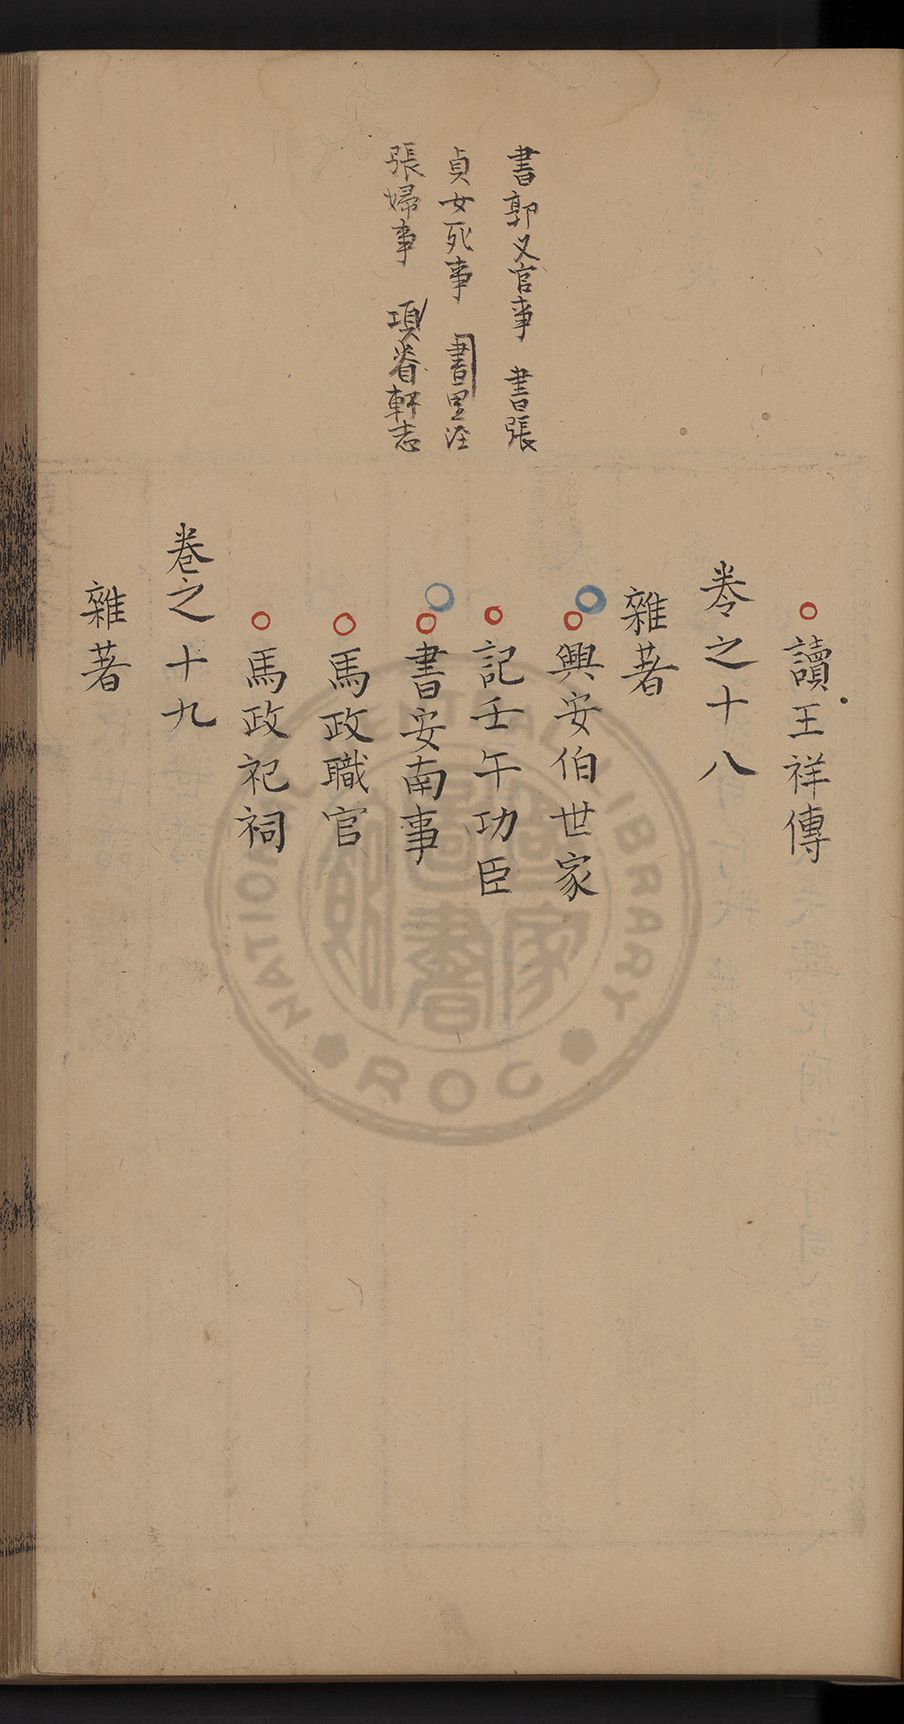 書郭义官事　書張
貞女死事　畫里涇
張婦事　項脊軒志
讀王祥傳
卷之十八
雜著
興安伯世家
記壬午功臣
書安南事
馬政職官
馬政祀祠
卷之十九
雜著
NATIONAL CENTRAL LIBRARY
ROC
國家圖書館